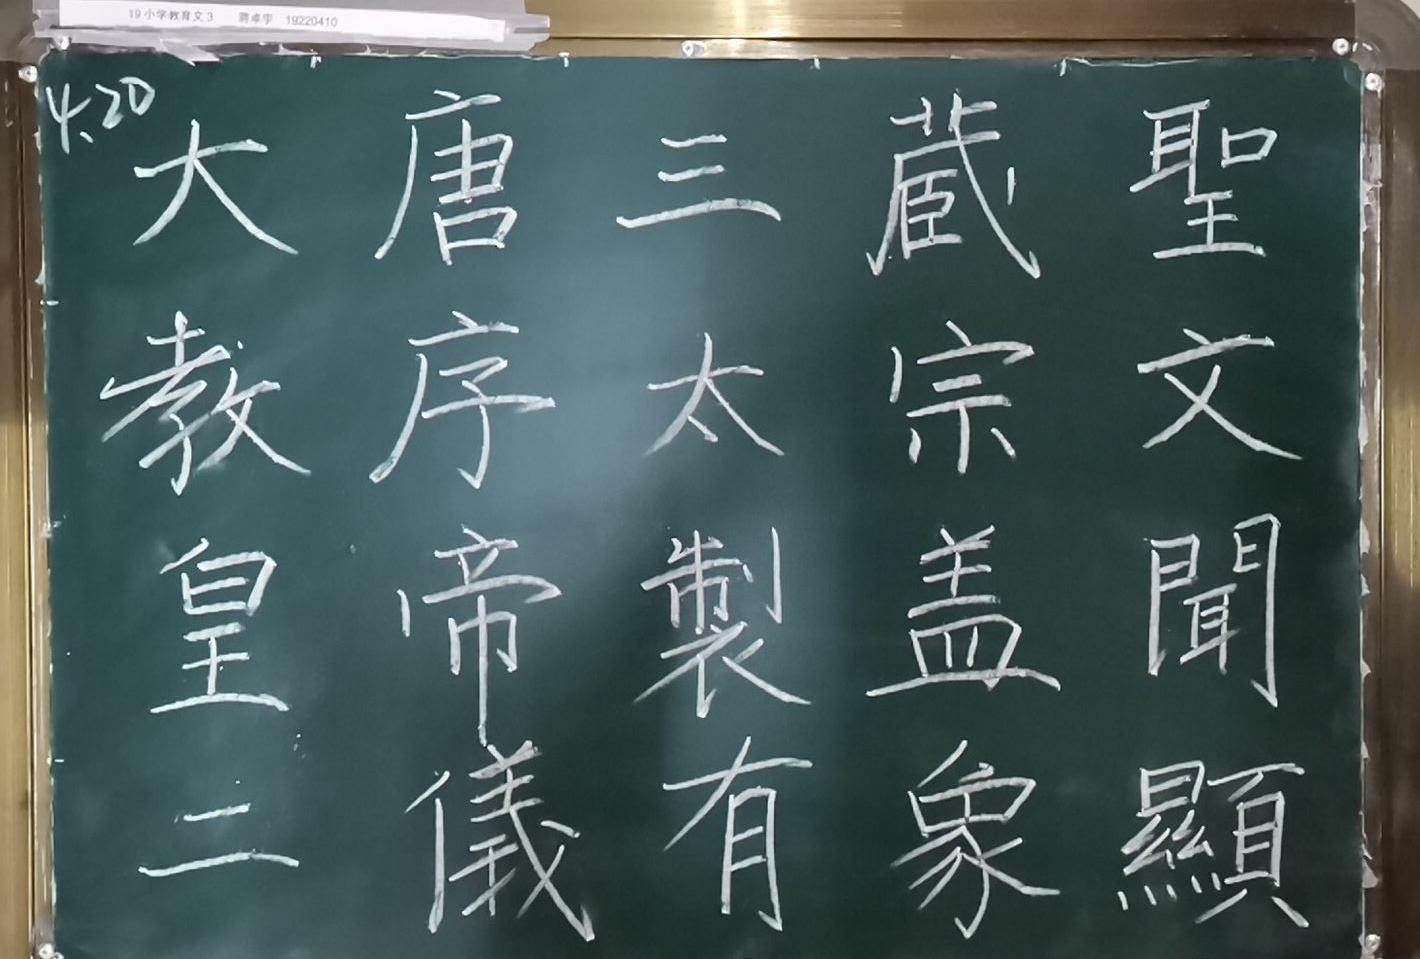 19小学教育文3 蒋卓宇 19220410
4.20
大唐三蔵聖
教序太宗文
皇帝製盖聞
二儀有象顯